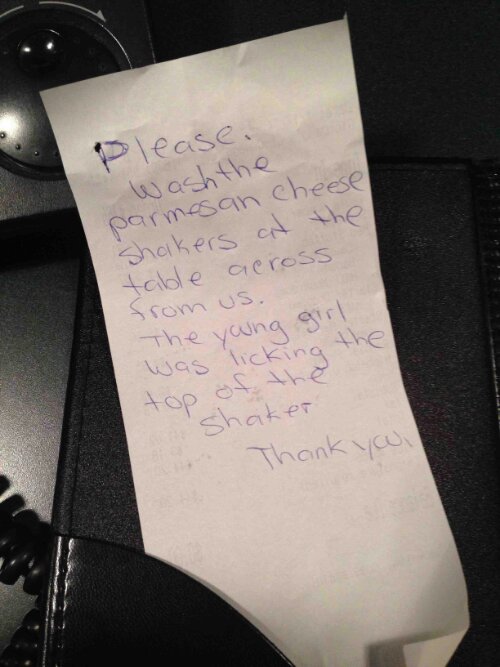 Please.
Wash the
parmesan cheese
shakers at the
table across
from us.
The young girl
was licking the
top of the
shaker
Thank you.